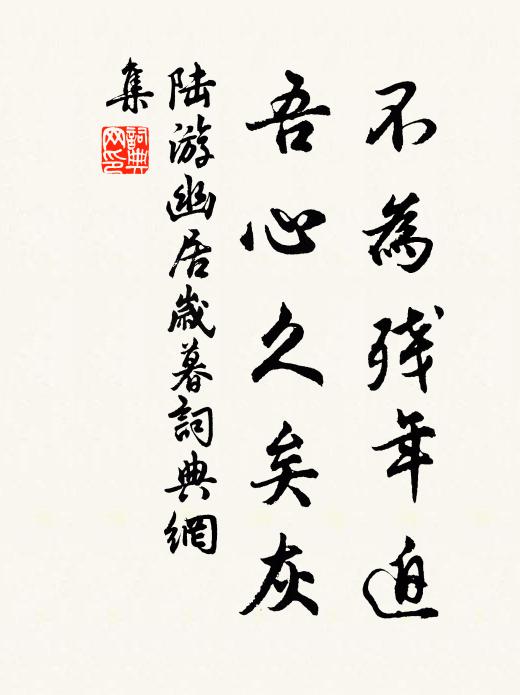 不為殘年迫
吾心久矣灰
陸游幽居歲暮詞典網
集
詞典網印